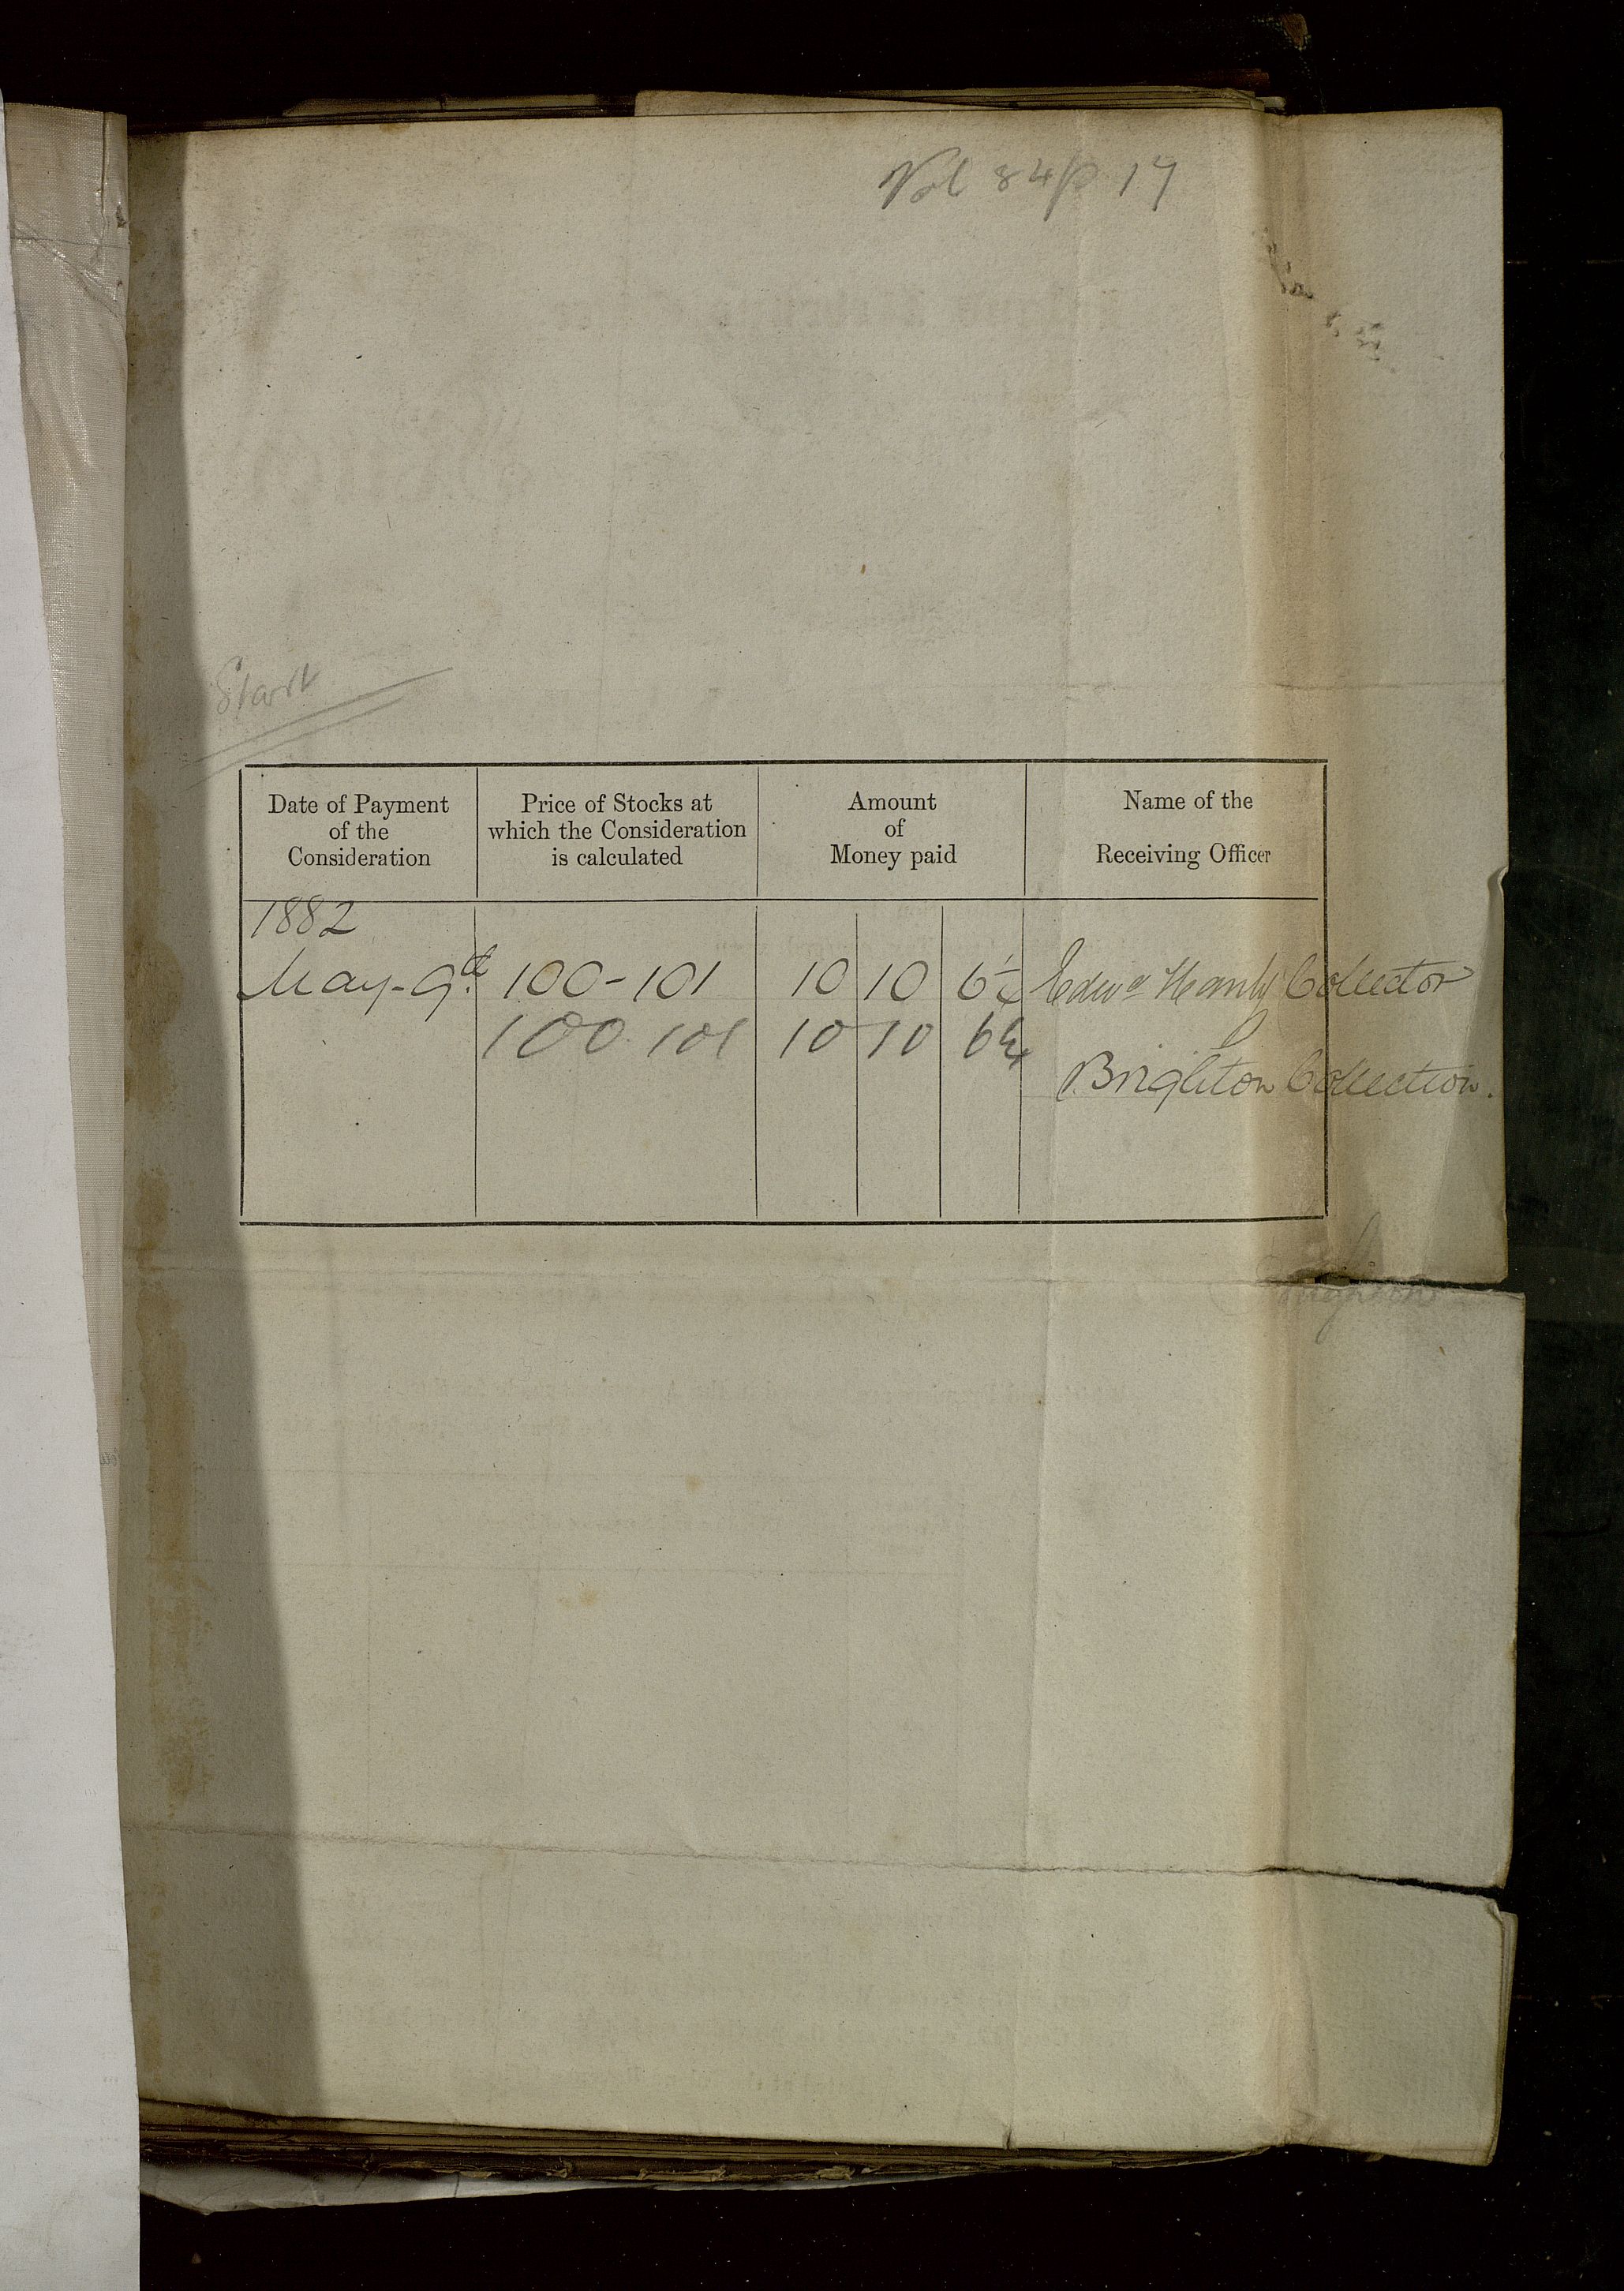 Vol 84 p 17
Start
Date of Payment
of the
Consideration
Price of Stocks at
which the Consideration
is calculated
Amount
of
Money paid
Name of the
Receiving Officer
1882
May 9th 100-101 10 10 6½ Edwd Hanly Collector
100 101 10 10 6½
Brighton Collection.